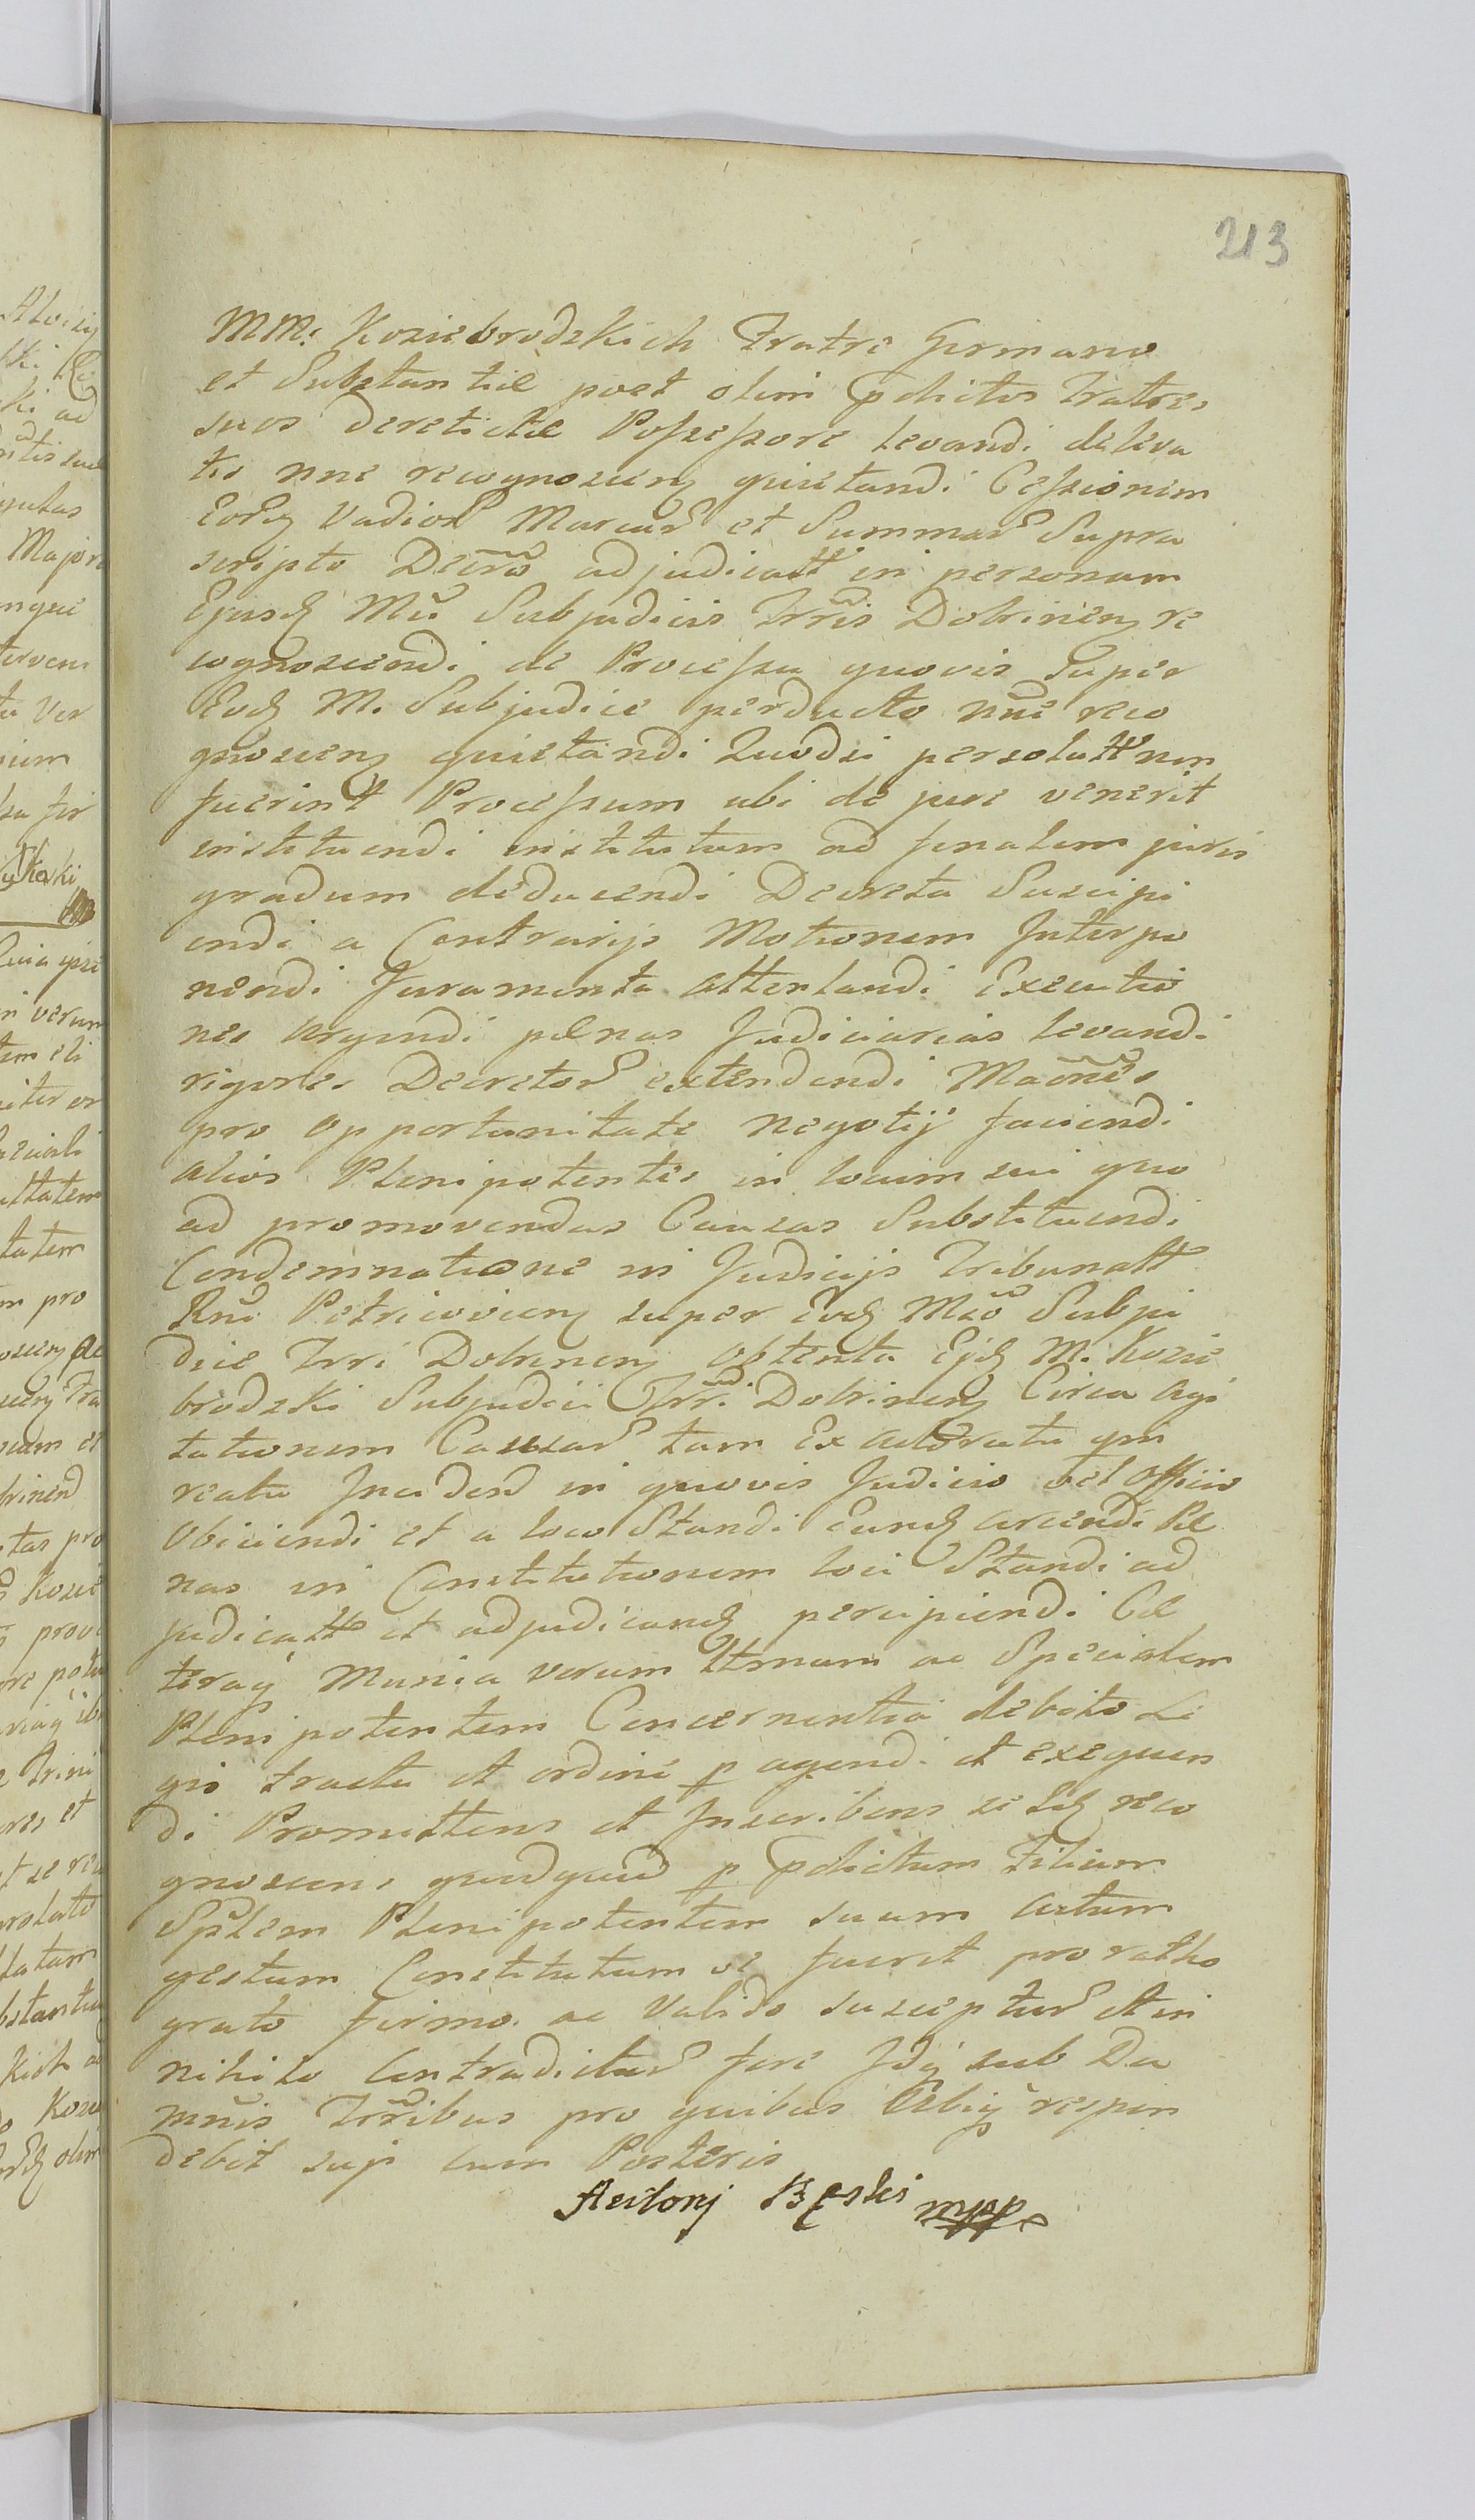 213
MM. Koziebrodzkich Fratre Germano
et Substantiæ post olim pdictos Fratres
suos derelictæ Possessore levandi de leva
tis nne recognoscen quietandi Cessionem
Eorg Vadior Marcar et Summar Supra
scripto Decro adjudicatt in personam
Ejusd Mci Subjudicis Trris Dobrinen re
cognoscendi de Processu quovis super
Eod M. Subjudice perducto nne reco
gnoscen quietandi Quodsi persolutt non
fuerint Processum ubi de jure venerit
instituendi institutum ad finalem juris
gradum deducendi Decreta Suscipi
endi a Contrarijs Motionem Interpo
nendi Juramenta attentandi Executio
nes urgendi pænas Judiciarias levandi
rigores Decretor extendendi Maones
pro opportunitate negotij faciendi
alios Plenipotentes in locum sui quo
ad promovendas Causas Substituendi
Condemnatione in Judicijs Tribunalt
Rni Petricovien super Eod Mco Subju
dice Trri Dobrinen obtenta Ejd M. Kozie
brodzki Subjudici Trri Dobrinen Circa Agi
tationem Causar tam Ex
reatu in quovis Judicio vel Officio
Obiiciendi et a loco Standi Eund arcendi Pæ
nas in Constitutionem loci Standi ad
judicatt et adjudicand percipiendi Cæ
teraq Munia verum ltmum ac Specialem
Plenipotentem Concernentia debito Le
gis tractu et ordine p agendi et exequen
di Promittens et Inscribens se hd reco
gnoscens quidquid p pdictum Filium
Splem Plenipotentem suum actum
gestum Constitutum ve fuerit pro ratho
grato firmo ac Valido suscептur et in
nihilo Contradictur fore Idq sub Da
mnis Trribus pro quibus Ubiq respon
debit sup cum Posteris
Antonj Bęski mpp